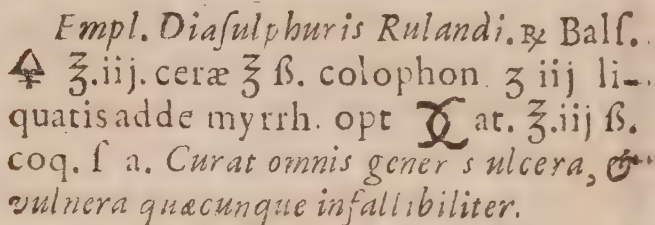 Empl. Diaſulphuris Rulandi. ℞ Balſ.
🜍 ℥.iij. ceræ ℥ ß. colophon ʒ iij li-
quatis adde myrrh. opt at. ℥.iij ß.
coq. ſ a. Curat omnis gener s ulcera, &
vulnera quæcunque infallibiliter.